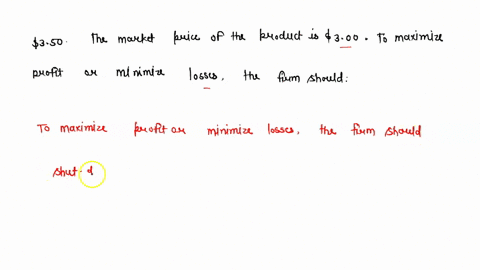 $3.50. The market price of the product is $3.00. To maximize
profit or minimize losses, the firm should:
To maximize profit or minimize losses, the firm should
shut-d